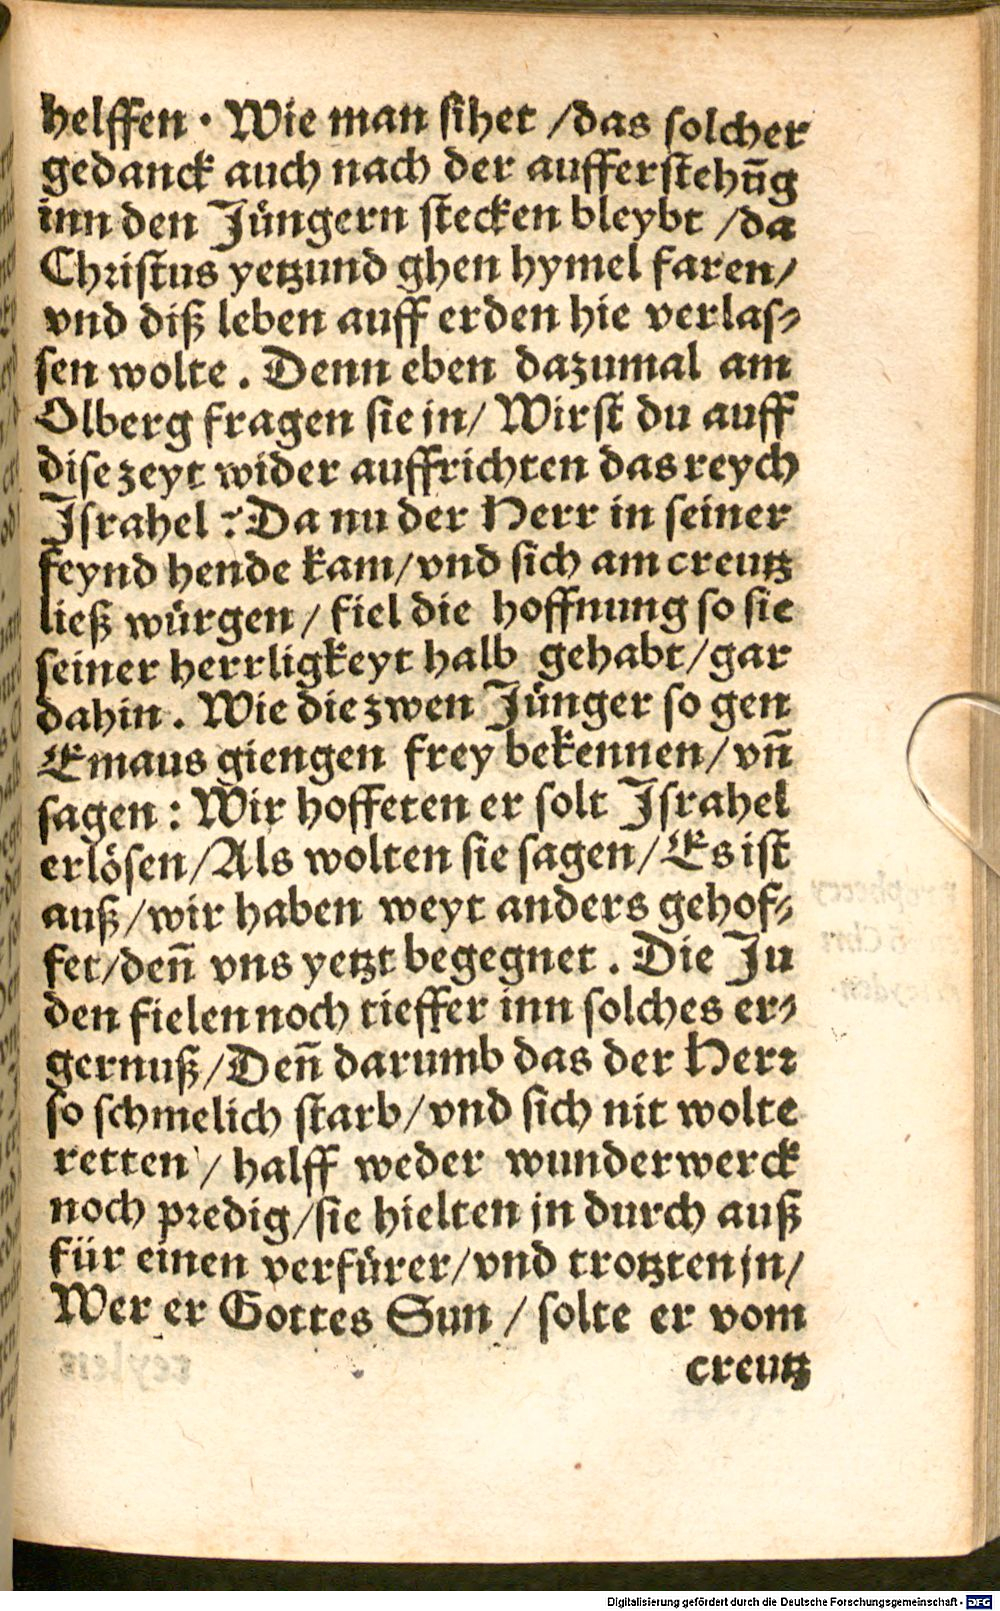 helffen. Wie man sihet /das solcher
gedanck auch nach der aufferstehūg
inn den Jüngern stecken bleybt /da
Christus yetzund ghen hymel faren/
vnd diß leben auff erden hie verlas-
sen wolte. Denn eben dazumal am
Olberg fragen sie jn/ Wirst du auff
dise zeyt wider auffrichten das reych
Israhel? Da nu der Herr in seiner
feynd hende kam/vnd sich am creutz
ließ würgen/ fiel die hoffnung so sie
seiner herrligkeyt halb gehabt/gar
dahin. Wie die zwen Jünger so gen
Emaus giengen frey bekennen/ vñ
sagen: Wir hoffeten er solt Israhel
erlösen/Als wolten sie sagen/ Es ist
auß/wir haben weyt anders gehof-
fet/deñ vns yetzt begegnet. Die Ju
den fielen noch tieffer inn solches er-
gernuß/Deñ darumb das der Herr
so schmelich starb/vnd sich nit wolte
retten / halff weder wunderwerck
noch predig/sie hielten jn durch auß
für einen verfürer/vnd trotzten jn/
Wer er Gottes Sun / solte er vom
creutz
Digitalisierung gefördert durch die Deutsche Forschungsgemeinschaft - DFG